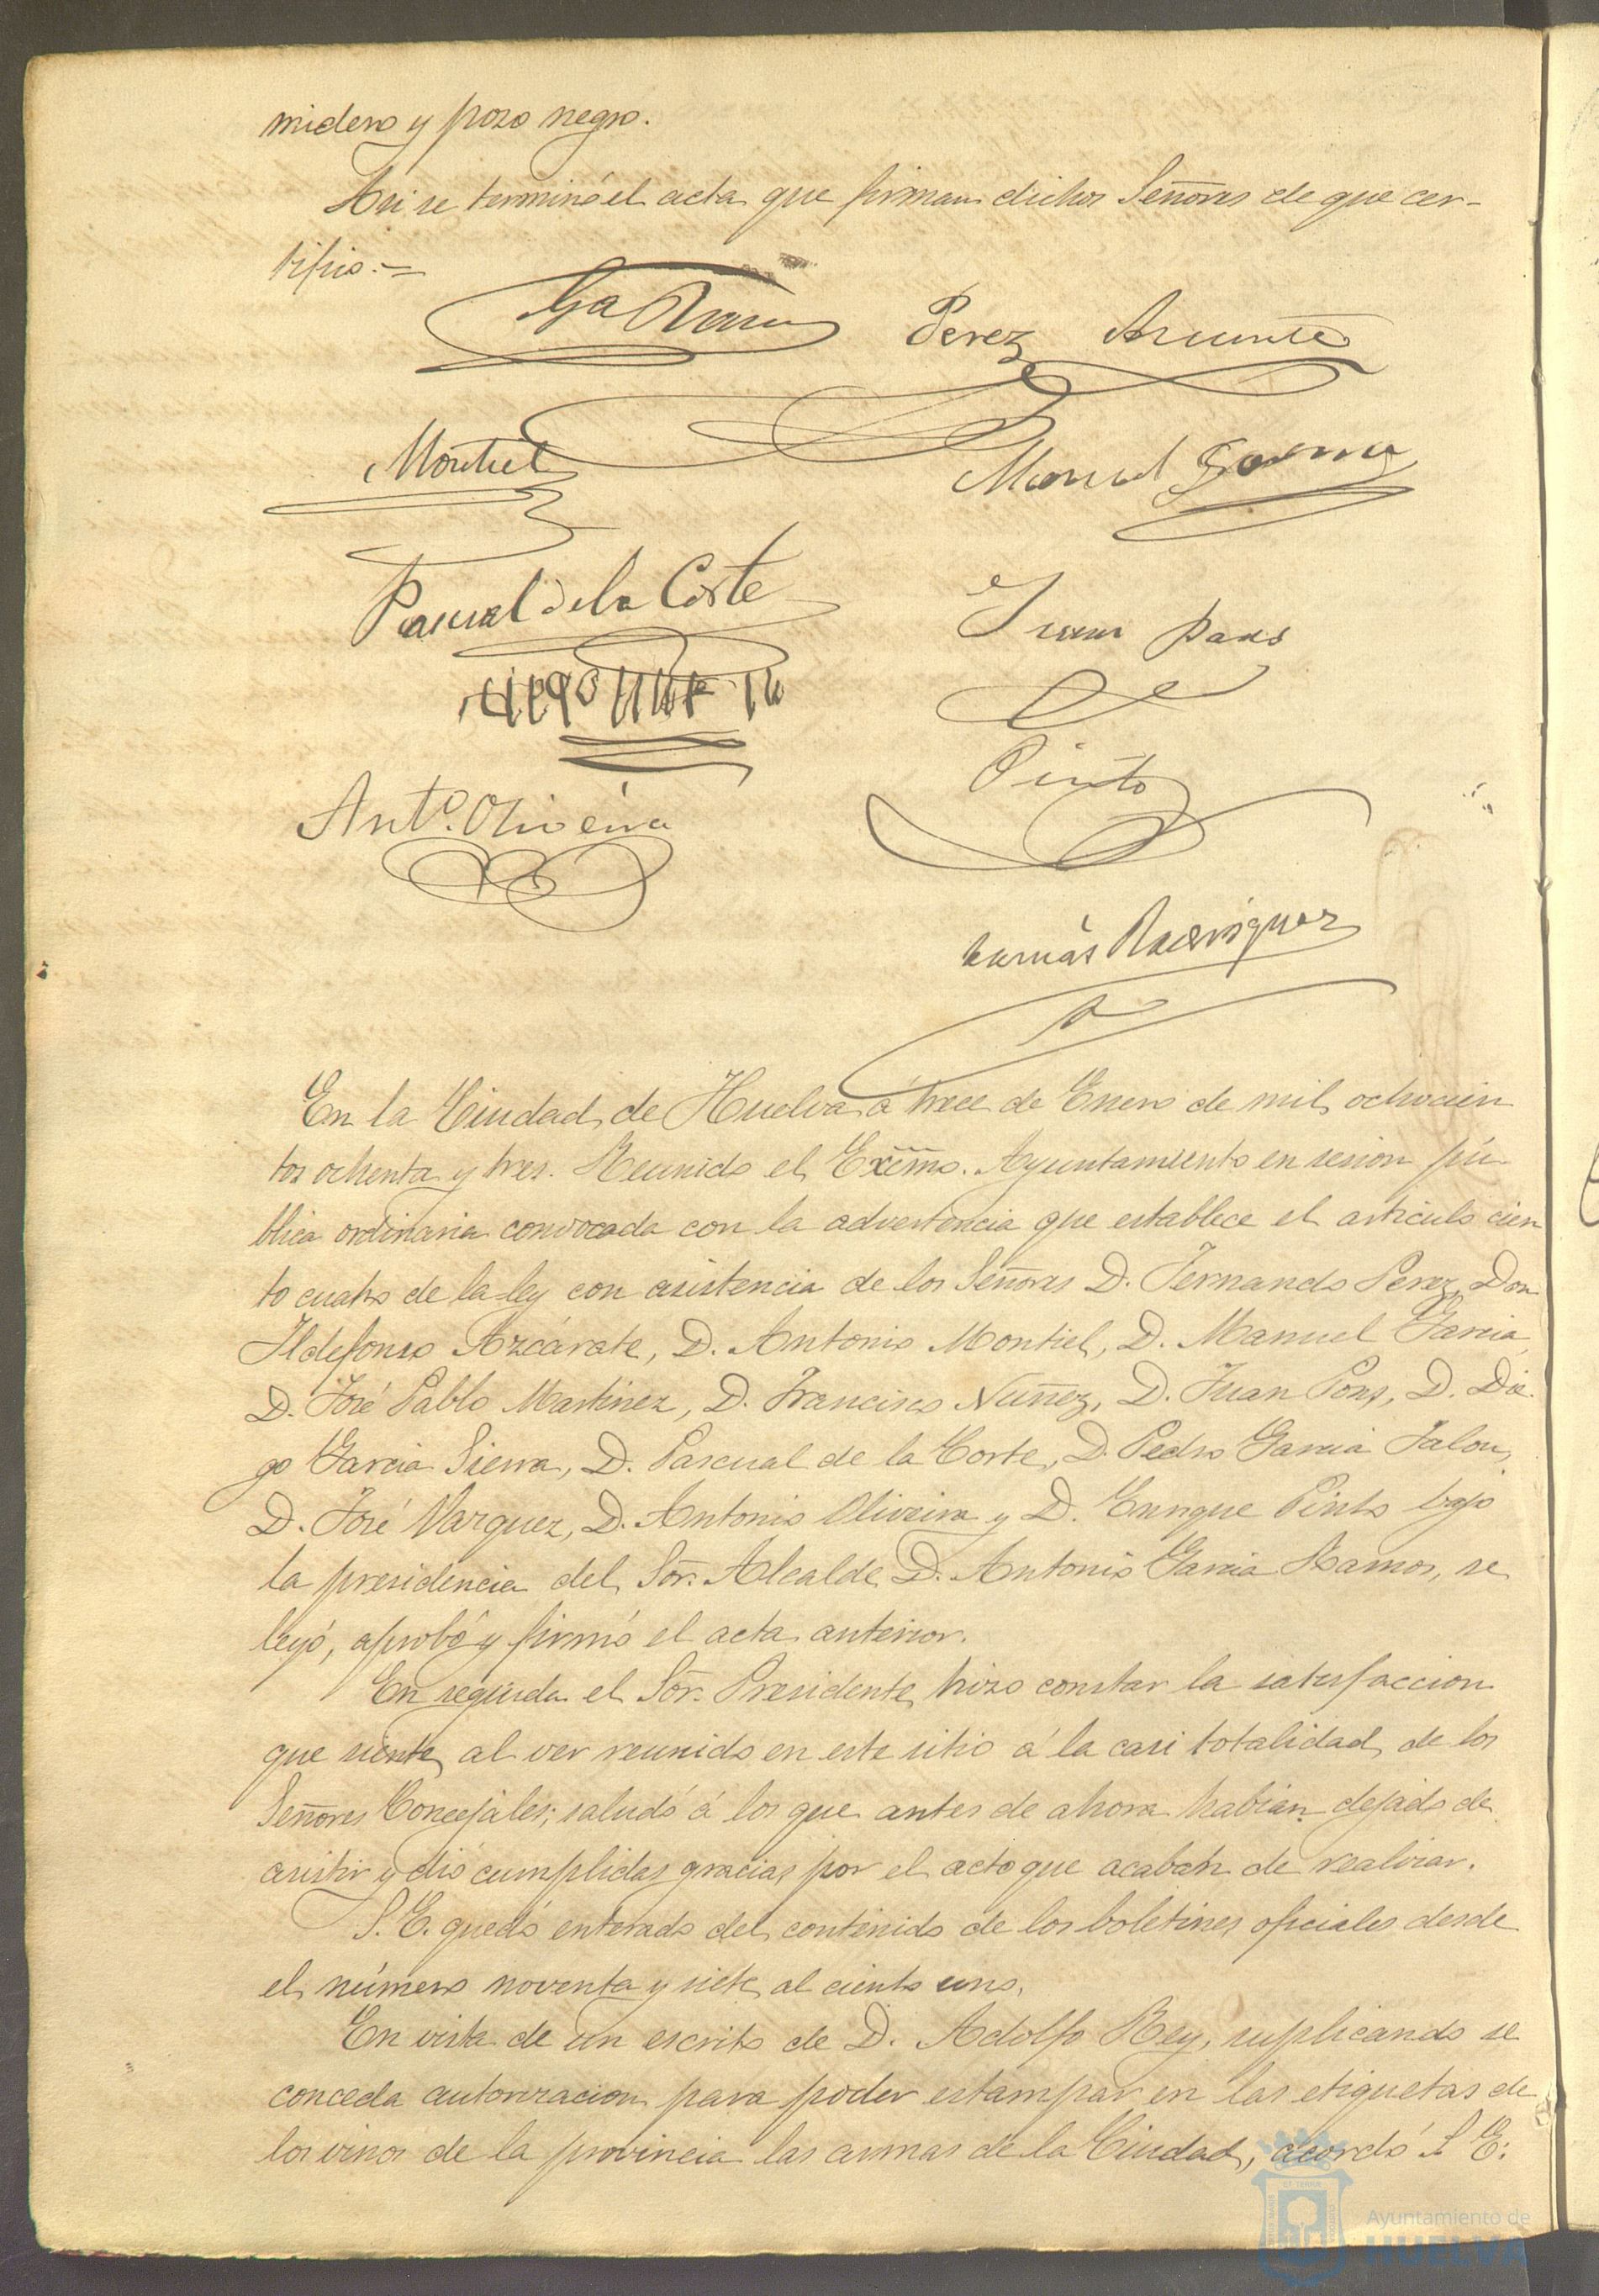 midero y pozo negro.
Asi se terminó el acta que firman dichos Señores de que cer-
tifico.=
Ga Ramos
Perez Azcarate
Montiel
Manuel Garcia
Pascual de la Corte
Juan Pons
Pinto
Antº. Oliveira
Tomás Rodriguez
En la Ciudad de Huelva á trece de Enero de mil ochocien
tos ochenta y tres. Reunido el Excmo. Ayuntamiento en sesion pú-
blica ordinaria convocada con la advertencia que establece el articulo cien
to cuatro de la ley con asistencia de los Señores D. Fernando Perez, Don
Ildefonso Azcárate, D. Antonio Montiel, D. Manuel Garcia,
D. José Pablo Martinez, D. Francisco Nuñez, D. Juan Pons, D. Die-
go Garcia Sierra, D. Pascual de la Corte, D. Pedro Garcia Jalon,
D. José Vazquez, D. Antonio Oliveira y D. Enrique Pinto bajo
la presidencia del Sor. Alcalde D. Antonio Garcia Ramos, se
leyó, aprobó y firmó el acta anterior.
En seguida el Sor. Presidente hizo constar la satisfaccion
que siente al ver reunido en este sitio á la casi totalidad de los
Señores Concejales; saludó á los que antes de ahora habian dejado de
asistir y dió cumplidas gracias por el acto que acaban de realizar.
S. E. quedó enterado del contenido de los boletines oficiales desde
el número noventa y siete al ciento uno.
En vista de un escrito de D. Adolfo Rey, suplicando se
conceda autorizacion para poder estampar en las etiquetas de
los vinos de la provincia las armas de la Ciudad, acordó S. E.
Ayuntamiento de
HUELVA